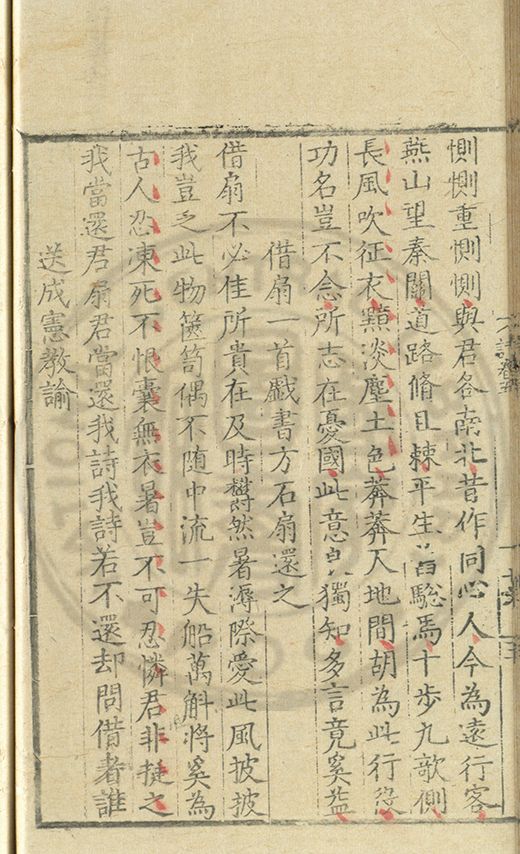 惻惻重惻惻與君各南北昔作同心人今為遠行客
燕山望秦關道路脩且棘平生驄馬十步九歌側
長風吹征衣黲淡塵土色莽莽天地間胡為此行役
功名豈不念所志在憂國此意獨知多言竟奚益
借扇一首戲書方石扇還之
借扇不必佳所貴在及時欝然暑溽際愛此風披披
我豈乏此物篋笥偶不随中流一失船萬斛將奚為
古人忍凍死不恨囊無衣暑豈不可忍憐君非挻之
我當還君扇君當還我詩我詩若不還却問借者誰
送成憲教諭